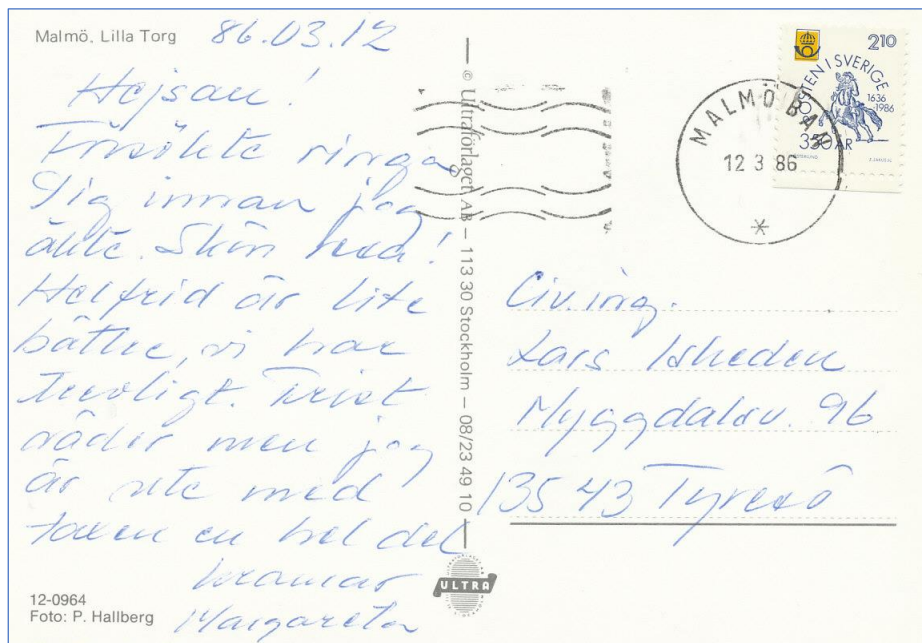 Malmö. Lilla Torg
86.03.12
Hejsan!
Försökte ringa
Dig innan jag
åkte. Skön resa!
Helfrid är lite
bättre, vi har
trevligt. Trist
väder men jag
är ute med
taxen en hel del
kramar
Margareta
12-0964
Foto: P. Hallberg
© Ultraförlaget AB – 113 30 Stockholm – 08/23 49 10
ULTRA
210
POSTEN I SVERIGE
1636
-1986
350 ÅR
MALMÖ BAN
12 3 86
Civ.ing.
Lars Isheden
Myggdalsv. 96
135 43 Tyresö